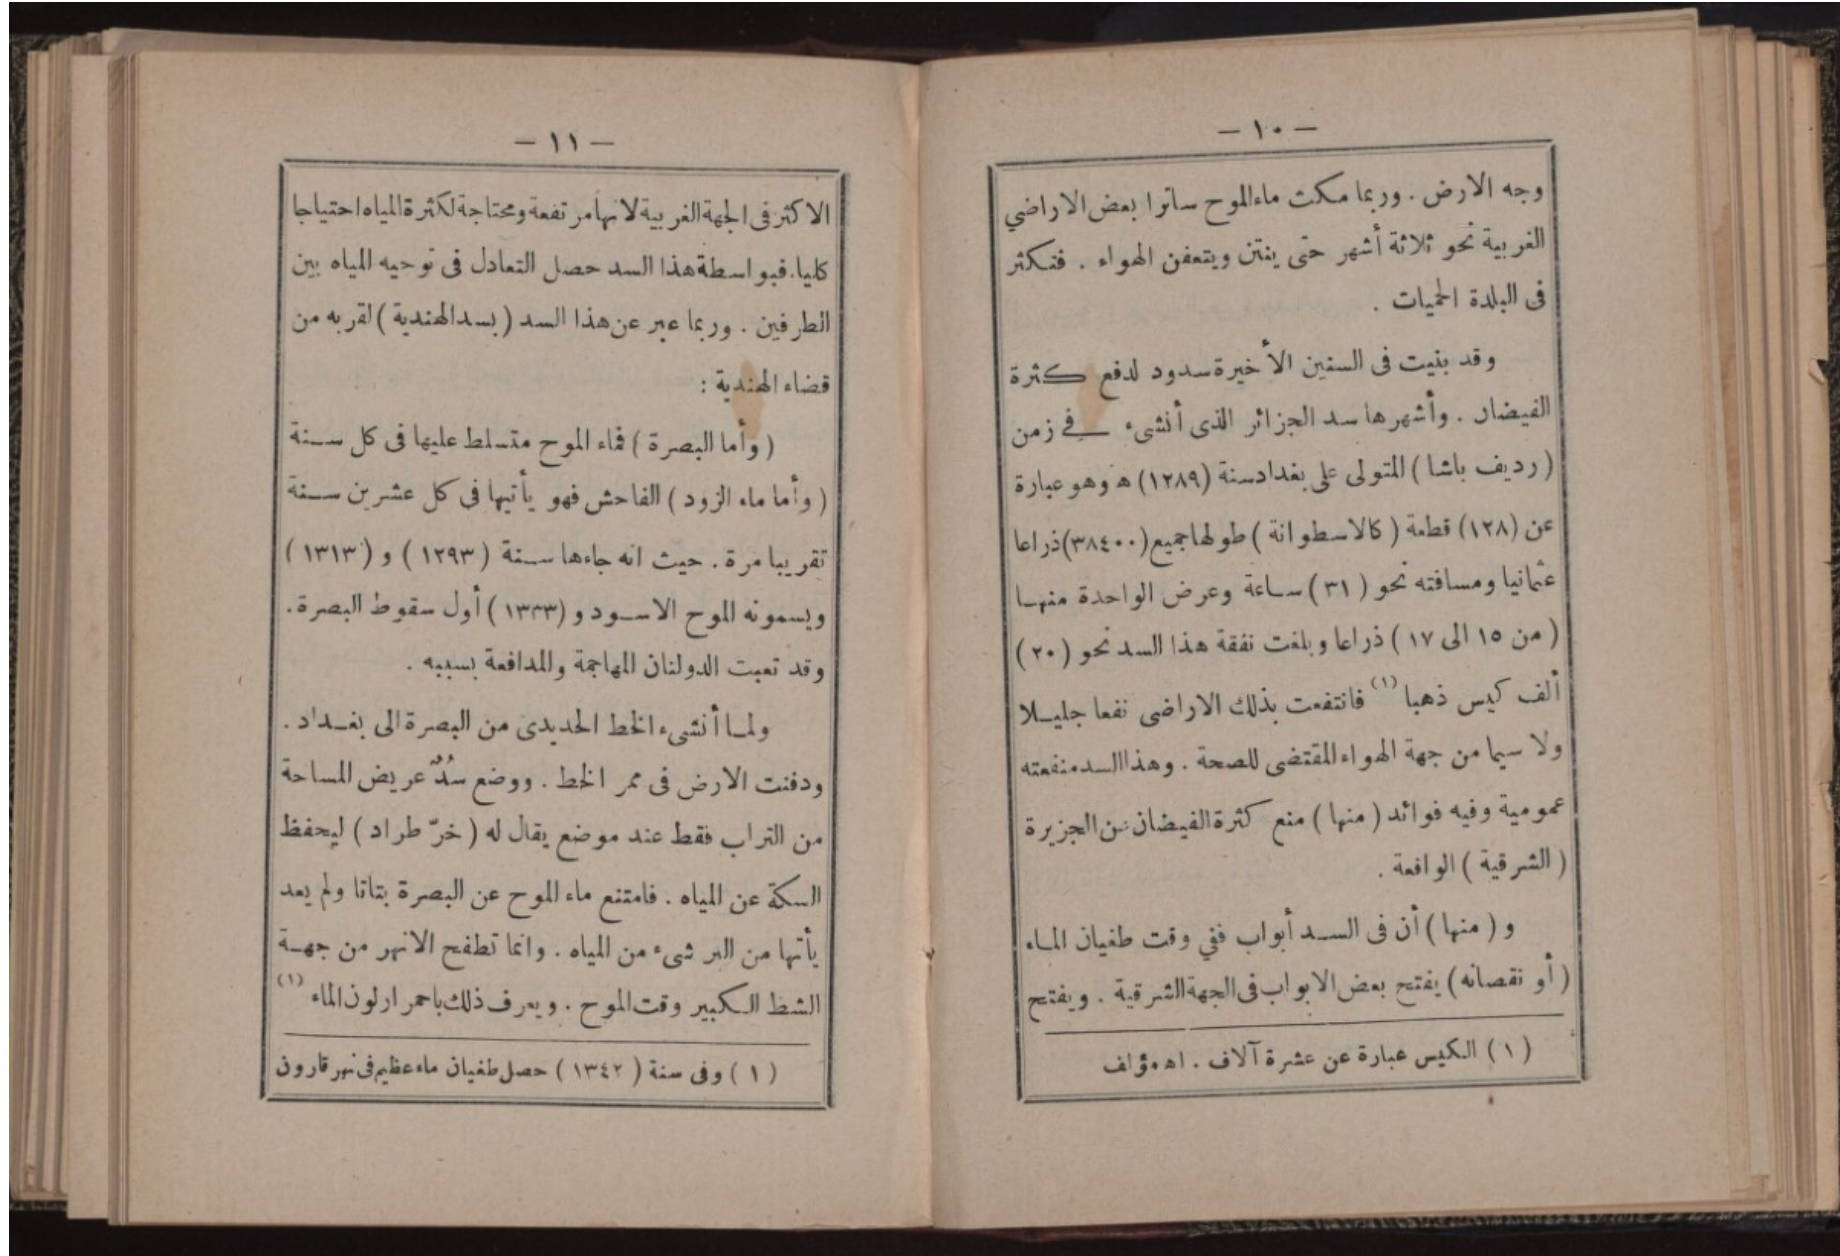 — ١٠ —
وجه الارض . وربما مكث ماء الموح ساترا بعض الاراضي
الغربية نحو ثلاثة أشهر حتى ينتن ويتعفن الهواء . فتكثر
فى البلدة الحميات .
وقد بنيت فى السنين الأخيرة سدود لدفع كثرة
الفيضان . وأشهرها سد الجزائر الذى أنشىء في زمن
( رديف باشا ) المتولى على بغداد سنة (١٢٨٩) ه وهو عبارة
عن (١٢٨) قطعة ( كالاسطوانة ) طولها جميع (٣٨٤٠٠) ذراعا
عثمانيا ومسافته نحو ( ٣١ ) ساعة وعرض الواحدة منها
( من ١٥ الى ١٧ ) ذراعا وبلغت نفقة هذا السد نحو ( ٢٠ )
ألف كيس ذهبا (١) فانتفعت بذلك الاراضى نفعا جليلا
ولا سيما من جهة الهواء المقتضى للصحة . وهذا السد منفعته
عمومية وفيه فوائد ( منها ) منع كثرة الفيضان عن الجزيرة
( الشرقية ) الواقعة .
و ( منها ) أن فى السد أبواب ففي وقت طغيان الماء
( أو نقصانه ) يفتح بعض الابواب فى الجهة الشرقية . ويفتح
( ١ ) الكيس عبارة عن عشرة آلاف . اه مؤلف
— ١١ —
الاكثر فى الجهة الغربية لانها مرتفعة ومحتاجة لكثرة المياه احتياجا
كليا. فبواسطة هذا السد حصل التعادل فى توجيه المياه بين
الطرفين . وربما عبر عن هذا السد ( بسد الهندية ) لقربه من
قضاء الهندية :
( وأما البصرة ) فماء الموح متسلط عليها فى كل سنة
( وأما ماء الزود ) الفاحش فهو يأتيها فى كل عشرين سنة
تقريبا مرة . حيث انه جاءها سنة ( ١٢٩٣ ) و ( ١٣١٣ )
ويسمونه الموح الاسود و ( ١٣٣٣ ) أول سقوط البصرة .
وقد تعبت الدولتان المهاجمة والمدافعة بسببه .
ولما أنشىء الخط الحديدى من البصرة الى بغداد .
ودفنت الارض فى ممر الخط . ووضع سُدٌّ عريض المساحة
من التراب فقط عند موضع يقال له ( خرّ طراد ) ليحفظ
السكة عن المياه . فامتنع ماء الموح عن البصرة بتاتا ولم يعد
يأتها من البر شىء من المياه . وانما تطفح الانهر من جهة
الشط الكبير وقت الموح . ويعرف ذلك باحمرار لون الماء (١)
( ١ ) وفى سنة ( ١٣٤٢ ) حصل طغيان ماء عظيم فى نهر قارون